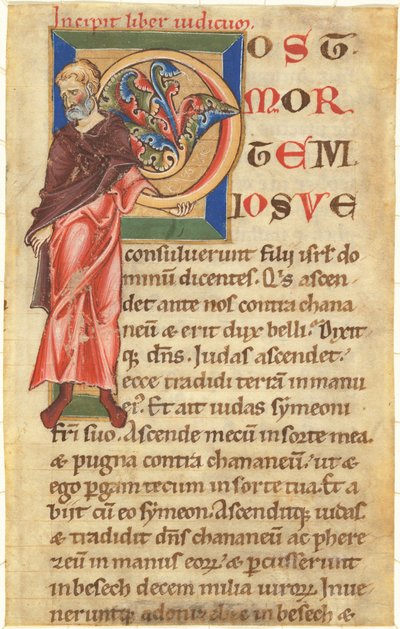 Incipit liber iudicum.
POST
MOR
TEM
IOSVE
consuluerunt filij isrl do
minū dicentes. Qis ascen
det ante nos contra chana
neū & erit dux belli? Dixit
q; dn̄s. Iudas ascendet.
ecce tradidi terrā in manu
ei. Et ait iudas symeoni
fr̄i suo. Ascende mecū in sorte mea.
& pugna contra chananeū. ut &
ego p̱gam tecum in sorte tua. Et a
bijt cū eo symeon. Ascenditq; iudas.
& tradidit dn̄s chananeū ac phere
zeū in manus eoꝝ. & percusserunt
in besech decem milia uiroꝝ. Inue
neruntq; adoni in besech &